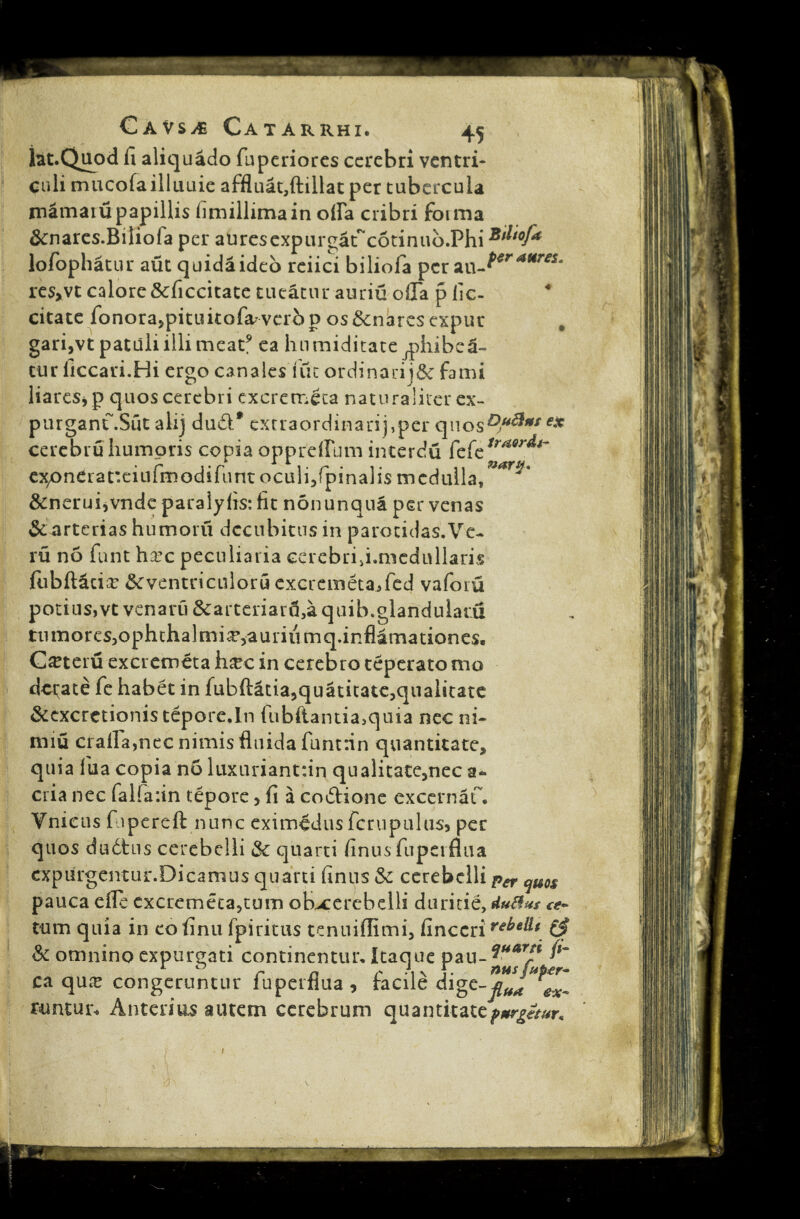 CAVSÆ CATARRHI. 45
lat.Quod ſi aliquādo ſuperiores cerebri ventri-
culi mucoſa illuuie affluāt,ſtillat per tubercula
māmarū papillis ſimillima in oſſa cribri forma
&nares.Bilioſa per aures expurgāt͛ cōtinuò.Phi
loſophātur aūt quidā ideò reiici bilioſa per au-
res,vt calore &ſiccitate tueātur auriū oſſa p̱ ſic-
citate ſonora,pituitoſa verò p̱ os &nares expur
gari,vt patuli illi meatꝰ ea humiditate ꝓhibeā-
tur ſiccari.Hi ergo canales ſūt ordinarij& fami
liares, p̱ quos cerebri excremēta naturaliter ex-
purgant͛.Sūt alij ductꝰ extraordinarij,per quos
cerebrū humoris copia oppreſſum interdū ſeſe
exonerat:eiuſmodi ſunt oculi,ſpinalis medulla,
&nerui,vnde paralyſis: fit nōnunquā per venas
& arterias humorū decubitus in parotidas.Ve-
rū nō ſunt hæc peculiaria cerebri,i.medullaris
ſubſtātiæ &ventriculorū excremēta,ſed vaſorū
potius,vt venarū &arteriarū,à quib.glandularū
tumores,ophthalmiæ,auriū mq.inflāmationes.
Cæterū excremēta hæc in cerebro tēperato mo
deratè ſe habēt in ſubſtātia,quātitate,qualitate
&excretionis tēpore.In ſubſtantia,quia nec ni-
miū craſſa,nec nimis fluida ſunt:in quantitate,
quia ſua copia nō luxuriant:in qualitate,nec a-
cria nec ſalſa:in tēpore, ſi à coctione excernāt͛.
Vnicus ſupereſt nunc eximēdus ſcrupulus, per
quos ductus cerebelli & quarti ſinus ſuperflua
expurgentur.Dicamus quarti ſinus & cerebelli
pauca eſſe excremēta,tum ob cerebelli duritiē,
tum quia in eo ſinu ſpiritus tenuiſſimi, ſinceri
& omnino expurgati continentur. Itaque pau-
ca quæ congeruntur ſuperflua, facilè dige-
runtur. Anterius autem cerebrum quantitate
Bilioſa
per aures.
Ductus ex
traordi-
narij.
per quos
ductus ce-
rebelli &
quarti ſi-
nus ſuper-
flua ex-
purgētur.